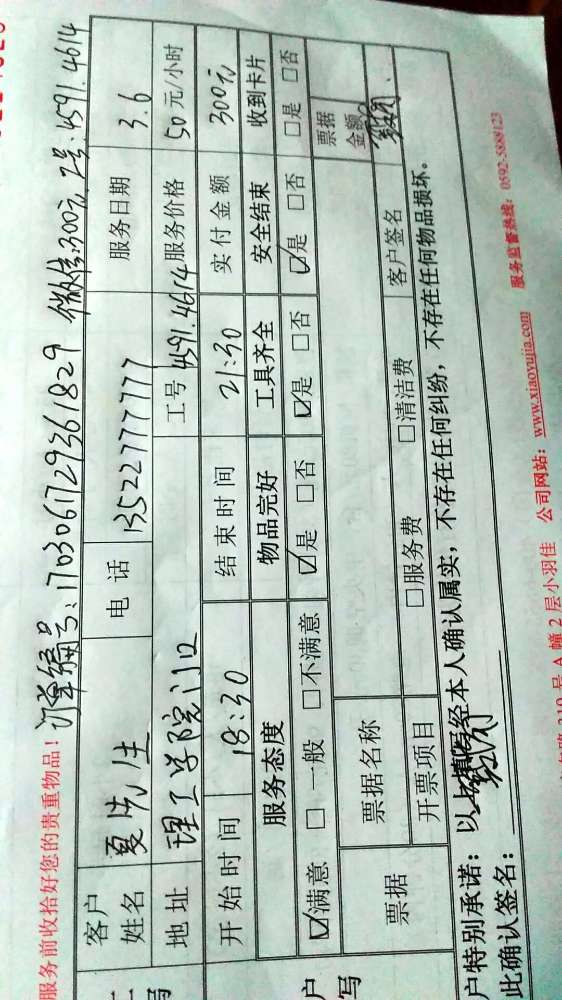 服务前收拾好您的贵重物品！ 订单编号:1703061729361829 微信:300元. 工号:4591.4614
客户姓名 夏先生 电话 13522777777 服务日期 3.6
地址 理工学院门口 工号 4591.4614 服务价格 50元/小时
开始时间 18:30 结束时间 21:30 实付金额 300元
服务态度 物品完好 工具齐全 安全结束 收到卡片
☑满意 □一般 □不满意 ☑是 □否 ☑是 □否 ☑是 □否 □是 □否
票据 票据名称 票据金额
开票项目 □服务费 □清洁费 客户签名
户特别承诺：以上填写经本人确认属实，不存在任何纠纷，不存在任何物品损坏。
此确认签名：
号 A 幢 2 层小羽佳 公司网站：www.xiaoyujia.com 服务监督热线：0592-5888123